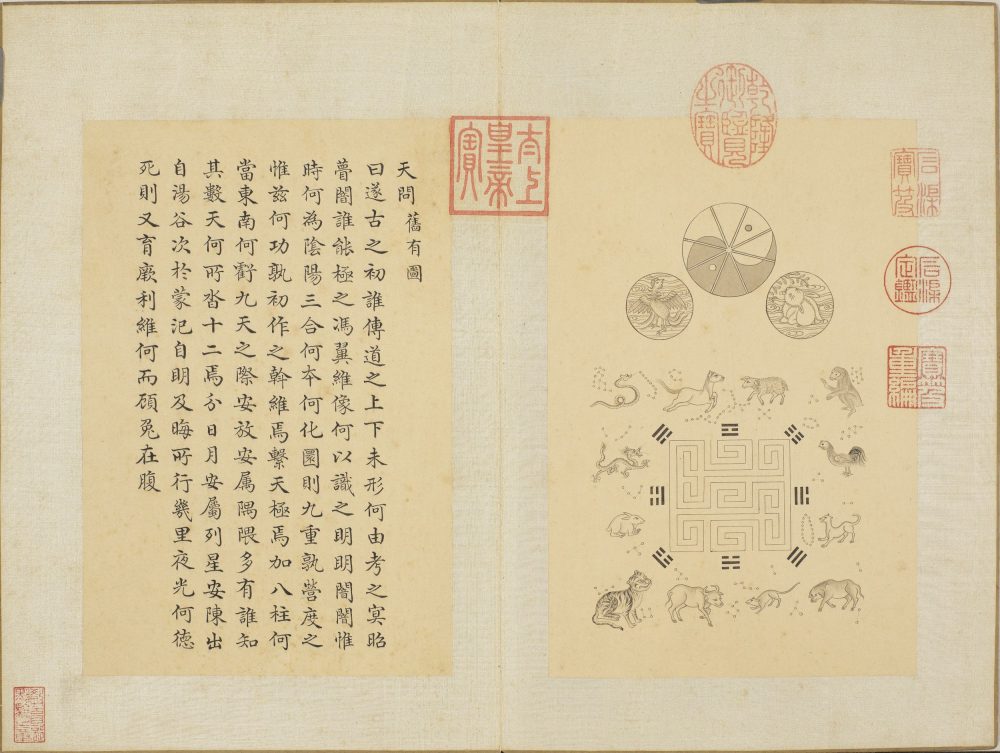 乾隆御覽之寶
石渠寶笈
石渠定鑑
寶笈重編
太上皇帝之寶
天問 舊有圖
曰遂古之初誰傳道之上下未形何由考之冥昭
瞢闇誰能極之馮翼維像何以識之明明闇闇惟
時何為陰陽三合何夲何化圜則九重孰營度之
惟茲何功孰初作之斡維焉繫天極焉加八柱何
當東南何虧九天之際安放安属隅隈多有誰知
其數天何所沓十二焉分日月安屬列星安陳出
自湯谷次於蒙汜自明及晦所行幾里夜光何德
死則又育厥利維何而顧兔在腹